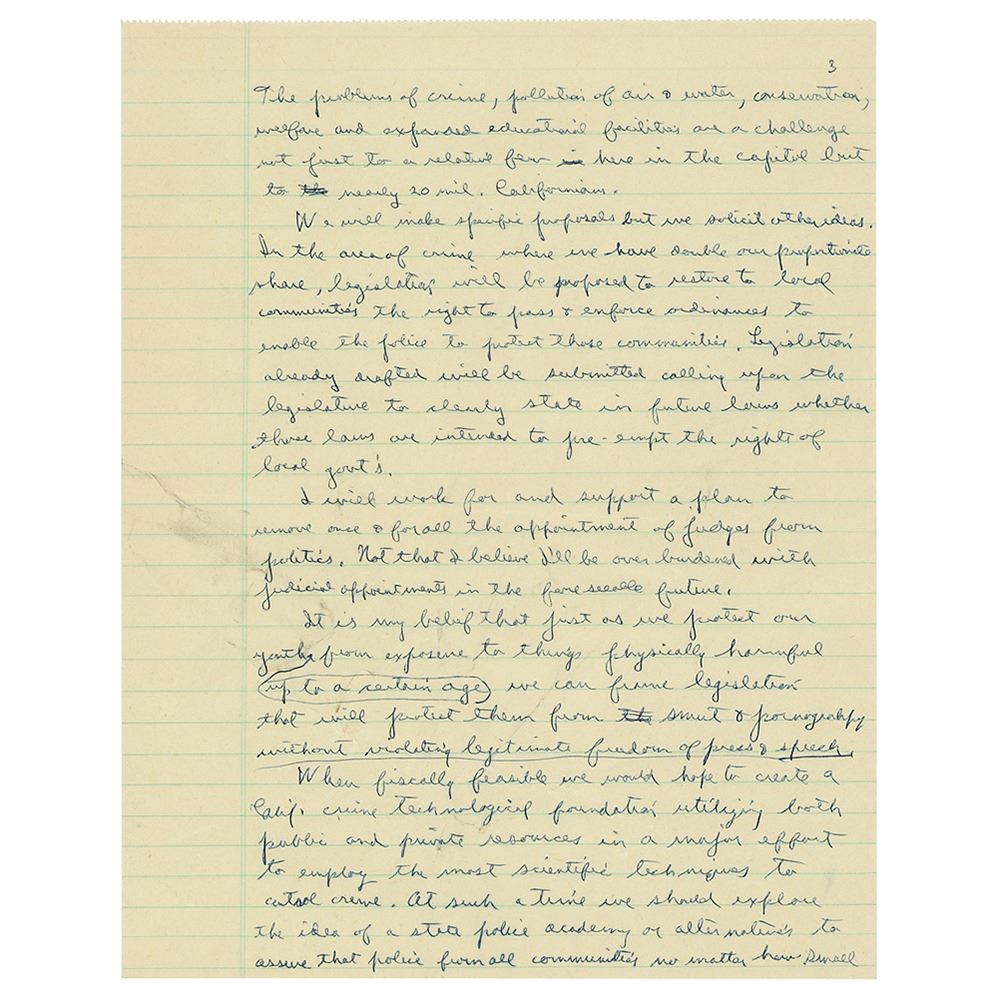 3
The problems of crime, pollution of air & water, conservation,
welfare and expanded educational facilities are a challenge
not just to a relative few in here in the capitol but
to nearly 20 mil. Californians.
We will make specific proposals but we solicit other ideas.
In the area of crime where we have double our proportionate
share, legislation will be proposed to restore to local
communities the right to pass & enforce ordinances to
enable the police to protect those communities. Legislation
already drafted will be submitted calling upon the
legislature to clearly state in future laws whether
those laws are intended to pre-empt the rights of
local govt's.
I will work for and support a plan to
remove once & for all the appointment of judges from
politics. Not that I believe I'll be over burdened with
judicial appointments in the foreseeable future.
It is my belief that just as we protect our
youths from exposure to things physically harmful
up to a certain age we can frame legislation
that will protect them from smut & pornography
without violating legitimate freedom of press & speech.
When fiscally feasible we would hope to create a
Calif. crime technological foundation utilizing both
public and private resources in a major effort
to employ the most scientific techniques to
control crime. At such a time we should explore
the idea of a state police academy or alternatives to
assure that police from all communities no matter how small